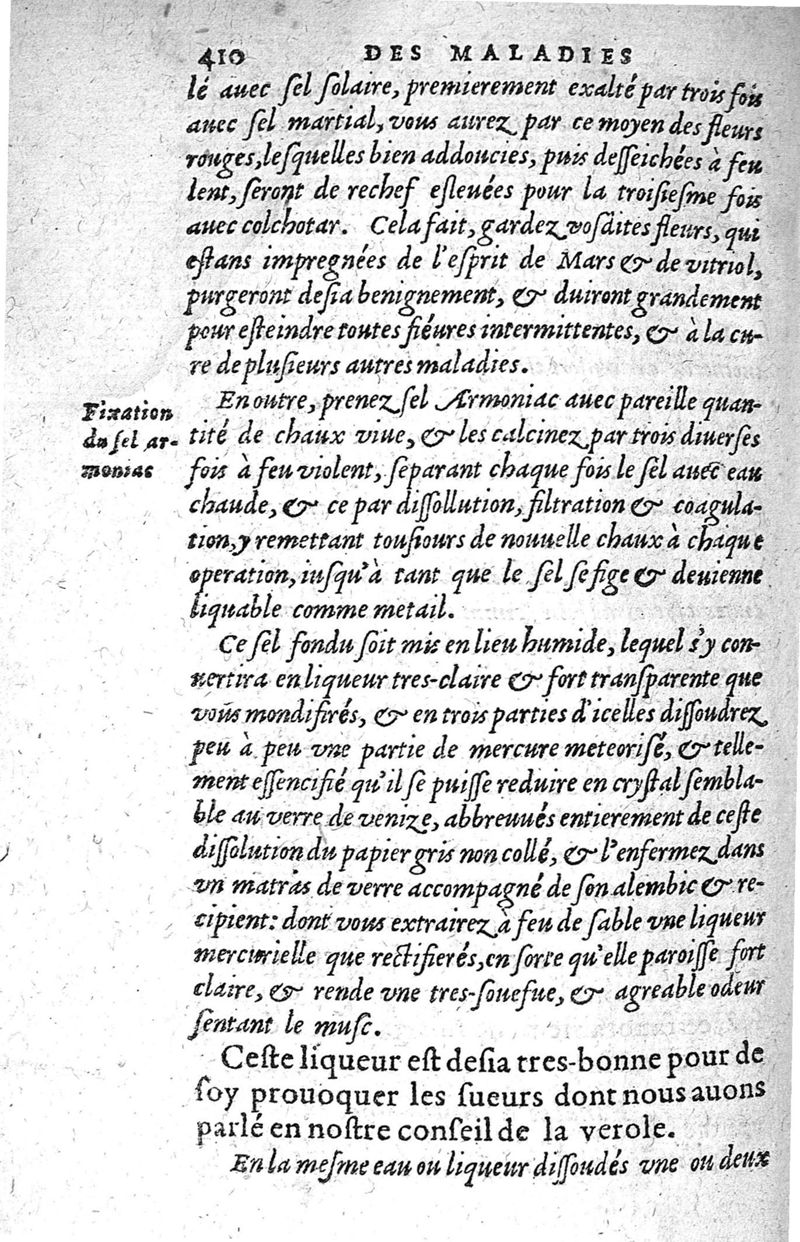 410 DES MALADIES
lé auec ſel ſolaire, premierement exalté par trois fois
auec ſel martial, vous aurez par ce moyen des fleurs
rouges, leſquelles bien addoucies, puis deſſeichées à feu
lent, ſeront de rechef eſleuées pour la troiſieſme fois
auec colchotar. Cela fait, gardez vosdites fleurs, qui
eſtans impregnées de l'eſprit de Mars & de vitriol,
purgeront deſia benignement, & duiront grandement
pour eſteindre toutes fiéures intermittentes, & à la cu-
re de pluſieurs autres maladies.
En outre, prenez ſel Armoniac auec pareille quan-
Fixation
du ſel ar-
moniac
tité de chaux viue, & les calcinez par trois diuerſes
fois à feu violent, ſeparant chaque fois le ſel auec eau
chaude, & ce par diſſollution, filtration & coagula-
tion, y remettant touſiours de nouuelle chaux à chaque
operation, iuſqu'à tant que le ſel ſe fige & deuienne
liquable comme metail.
Ce ſel fondu ſoit mis en lieu humide, lequel s'y con-
uertira en liqueur tres-claire & fort tranſparente que
vous mondifirés, & en trois parties d'icelles diſſoudrez
peu à peu vne partie de mercure meteoriſé, & telle-
ment eſſencifié qu'il ſe puiſſe reduire en cryſtal ſembla-
ble au verre de venize, abbreuués entierement de ceſte
diſſolution du papier gris non collé, & l'enfermez dans
vn matràs de verre accompagné de ſon alembic & re-
cipient: dont vous extrairez à feu de ſable vne liqueur
mercurielle que rectifierés, en ſorte qu'elle paroiſſe fort
claire, & rende vne tres-ſouefue, & agreable odeur
ſentant le muſc.
Ceſte liqueur eſt deſia tres-bonne pour de
ſoy prouoquer les ſueurs dont nous auons
parlé en noſtre conſeil de la verole.
En la meſme eau ou liqueur diſſoudés vne ou deux